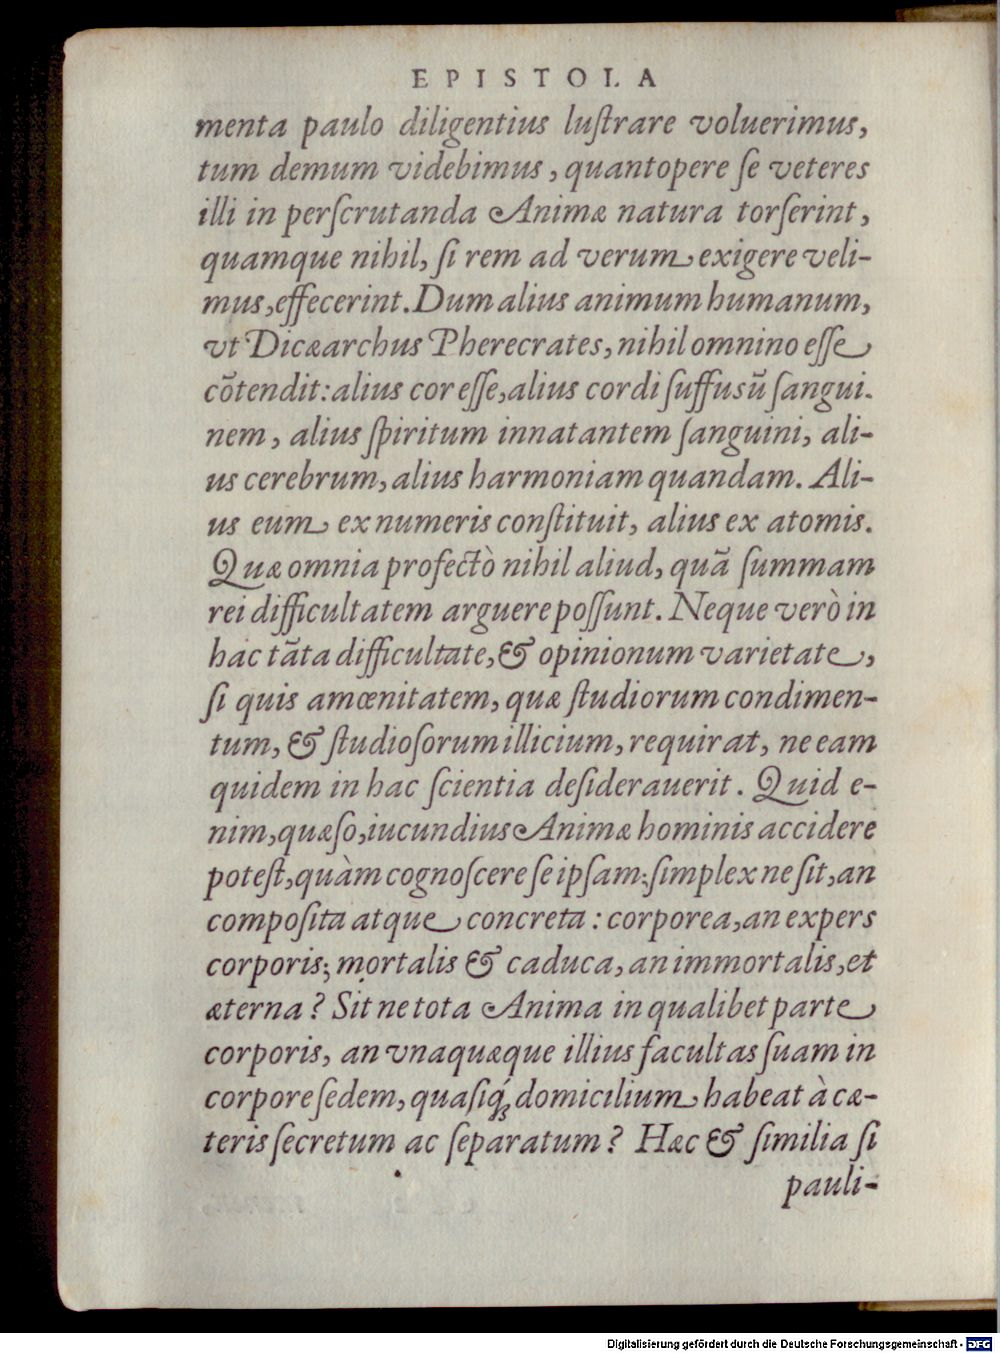 EPISTOLA
menta paulo diligentius luſtrare voluerimus,
tum demum videbimus, quantopere ſe veteres
illi in perſcrutanda Animæ natura torſerint,
quamque nihil, ſi rem ad verum exigere veli-
mus, effecerint. Dum alius animum humanum,
vt Dicæarchus Pherecrates, nihil omnino eſſe
cōtendit: alius cor eſſe, alius cordi ſuffusū ſangui-
nem, alius ſpiritum innatantem ſanguini, ali-
us cerebrum, alius harmoniam quandam. Ali-
us eum ex numeris conſtituit, alius ex atomis.
Quæ omnia profectò nihil aliud, quā ſummam
rei difficultatem arguere poſſunt. Neque verò in
hac tāta difficultate, & opinionum varietate,
ſi quis amœnitatem, quæ ſtudiorum condimen-
tum, & ſtudioſorum illicium, requirat, ne eam
quidem in hac ſcientia deſiderauerit. Quid e-
nim, quæſo, iucundius Animæ hominis accidere
poteſt, quàm cognoſcere ſe ipſam: ſimplex ne ſit, an
compoſita atque concreta: corporea, an expers
corporis; mortalis & caduca, an immortalis, et
æterna? Sit ne tota Anima in qualibet parte
corporis, an vnaquæque illius facultas ſuam in
corpore ſedem, quaſiq́ꝫ domicilium habeat à cæ-
teris ſecretum ac ſeparatum? Hæc & ſimilia ſi
pauli-
Digitalisierung gefördert durch die Deutsche Forschungsgemeinschaft - DFG